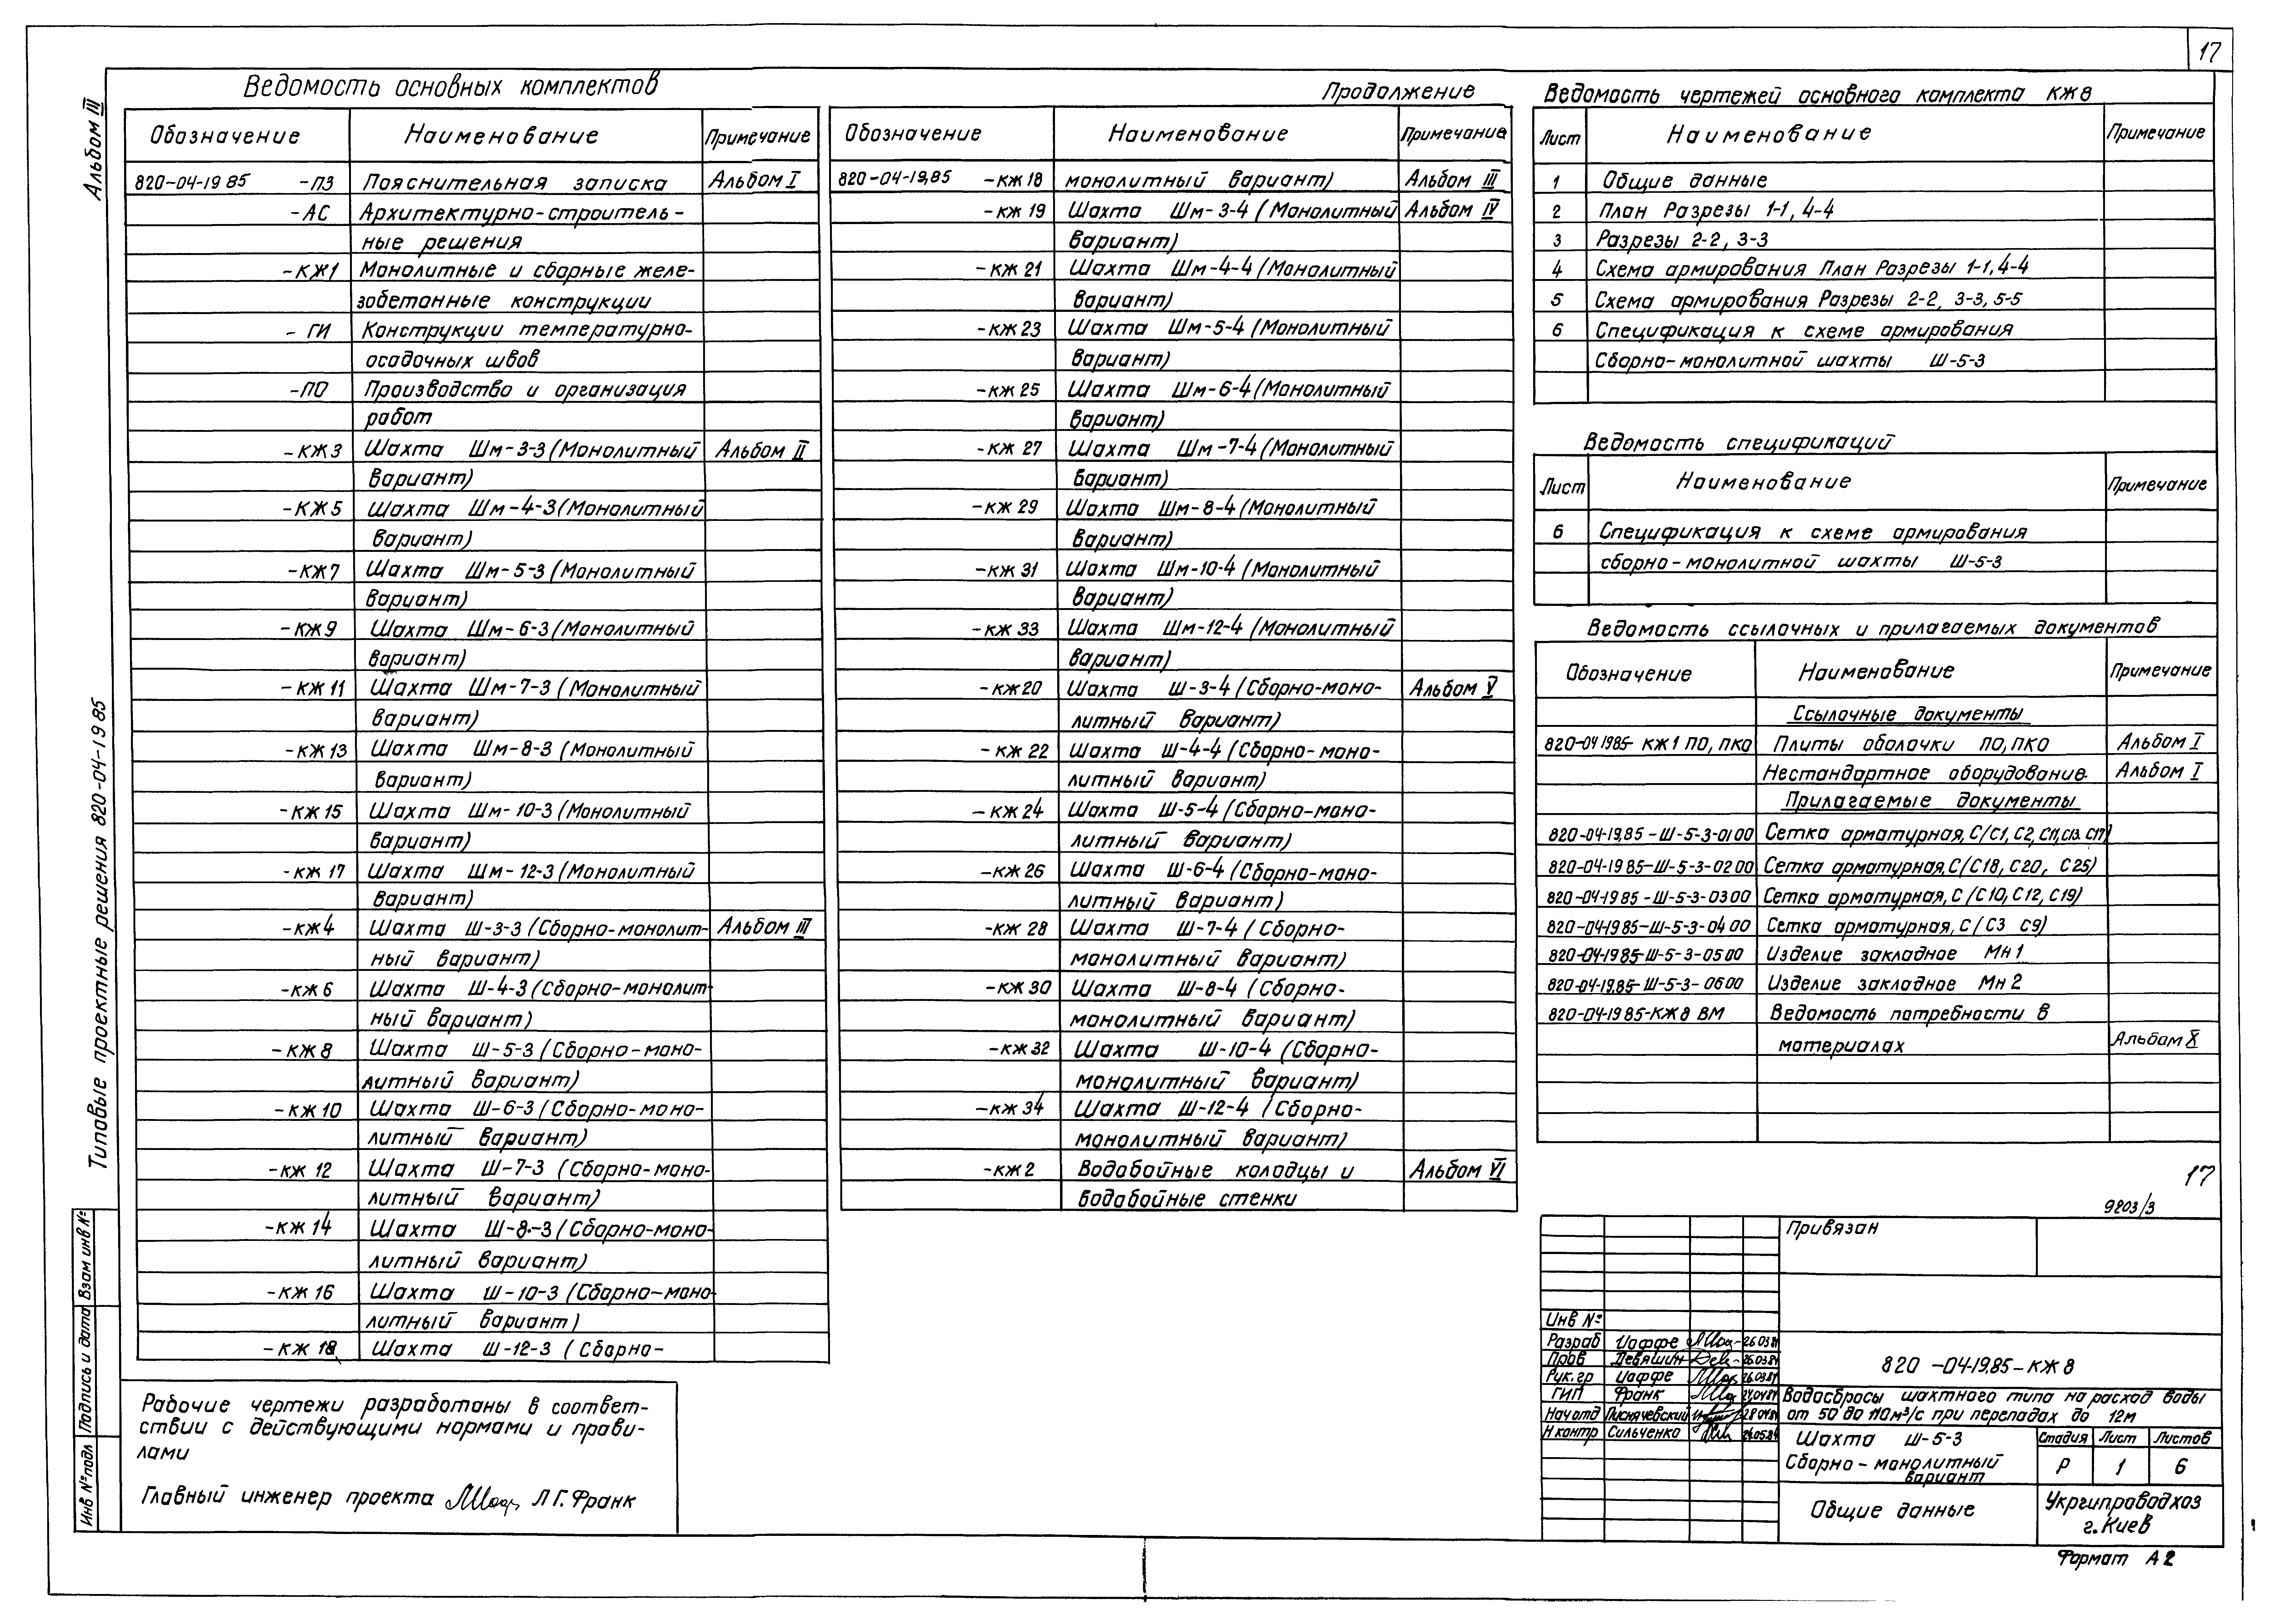 17
Альбом III
Типовые проектные решения 820-04-19 85
Взам инв №
Подпись и дата
Инв № подл
Ведомость основных комплектов
Обозначение Наименование Примечание
820-04-19 85 -ПЗ Пояснительная записка Альбом I
-АС Архитектурно-строитель-
ные решения
-КЖ1 Монолитные и сборные желе-
зобетонные конструкции
- ГИ Конструкции температурно-
осадочных швов
-ПО Производство и организация
работ
-КЖ3 Шахта Шм-3-3 (Монолитный Альбом II
вариант)
-КЖ5 Шахта Шм-4-3 (Монолитный
вариант)
-КЖ7 Шахта Шм-5-3 (Монолитный
вариант)
-КЖ9 Шахта Шм-6-3 (Монолитный
вариант)
-КЖ 11 Шахта Шм-7-3 (Монолитный
вариант)
-КЖ 13 Шахта Шм-8-3 (Монолитный
вариант)
-КЖ 15 Шахта Шм-10-3 (Монолитный
вариант)
-КЖ 17 Шахта Шм-12-3 (Монолитный
вариант)
-КЖ4 Шахта Ш-3-3 (Сборно-монолит- Альбом III
ный вариант)
-КЖ 6 Шахта Ш-4-3 (Сборно-монолит-
ный вариант)
-КЖ 8 Шахта Ш-5-3 (Сборно-моно-
литный вариант)
-КЖ 10 Шахта Ш-6-3 (Сборно-моно-
литный вариант)
-КЖ 12 Шахта Ш-7-3 (Сборно-моно-
литный вариант)
-КЖ 14 Шахта Ш-8-3 (Сборно-моно-
литный вариант)
-КЖ 16 Шахта Ш-10-3 (Сборно-моно-
литный вариант)
-КЖ 18 Шахта Ш-12-3 (Сборно-
Продолжение
Обозначение Наименование Примечание
820-04-19.85 -КЖ 18 монолитный вариант) Альбом III
-КЖ 19 Шахта Шм-3-4 (Монолитный Альбом IV
вариант)
-КЖ 21 Шахта Шм-4-4 (Монолитный
вариант)
-КЖ 23 Шахта Шм-5-4 (Монолитный
вариант)
-КЖ 25 Шахта Шм-6-4 (Монолитный
вариант)
-КЖ 27 Шахта Шм-7-4 (Монолитный
вариант)
-КЖ 29 Шахта Шм-8-4 (Монолитный
вариант)
-КЖ 31 Шахта Шм-10-4 (Монолитный
вариант)
-КЖ 33 Шахта Шм-12-4 (Монолитный
вариант)
-КЖ 20 Шахта Ш-3-4 (Сборно-моно- Альбом V
литный вариант)
-КЖ 22 Шахта Ш-4-4 (Сборно-моно-
литный вариант)
-КЖ 24 Шахта Ш-5-4 (Сборно-моно-
литный вариант)
-КЖ 26 Шахта Ш-6-4 (Сборно-моно-
литный вариант)
-КЖ 28 Шахта Ш-7-4 (Сборно-
монолитный вариант)
-КЖ 30 Шахта Ш-8-4 (Сборно-
монолитный вариант)
-КЖ 32 Шахта Ш-10-4 (Сборно-
монолитный вариант)
-КЖ 34 Шахта Ш-12-4 (Сборно-
монолитный вариант)
-КЖ 2 Водобойные колодцы и Альбом VI
водобойные стенки
Ведомость чертежей основного комплекта КЖ8
Лист Наименование Примечание
1 Общие данные
2 План Разрезы 1-1, 4-4
3 Разрезы 2-2, 3-3
4 Схема армирования План Разрезы 1-1, 4-4
5 Схема армирования Разрезы 2-2, 3-3, 5-5
6 Спецификация к схеме армирования
Сборно-монолитной шахты Ш-5-3
Ведомость спецификаций
Лист Наименование Примечание
6 Спецификация к схеме армирования
сборно-монолитной шахты Ш-5-3
Ведомость ссылочных и прилагаемых документов
Обозначение Наименование Примечание
Ссылочные документы
820-04 1985- КЖ1 ПО, ПКО Плиты оболочки ПО, ПКО Альбом I
Нестандартное оборудование Альбом I
Прилагаемые документы
820-04-19.85-Ш-5-3-01 00 Сетка арматурная, С/С1, С2, С11, С13. С17)
820-04-19 85-Ш-5-3-02 00 Сетка арматурная, С/С18, С20, С25)
820-04-19 85-Ш-5-3-03 00 Сетка арматурная, С /С10, С12, С19)
820-04-19 85-Ш-5-3-04 00 Сетка арматурная, С/ С3 С9)
820-04-19 85-Ш-5-3-05 00 Изделие закладное Мн 1
820-04-19.85-Ш-5-3-06 00 Изделие закладное Мн 2
820-04-19 85-КЖ 8 ВМ Ведомость потребности в
материалах Альбом X
17
9203/3
Привязан
Инв №
Разраб Иоффе 26.03.84
Пров Девяшин 26.03.84
Рук. гр Иоффе 26.03.84
ГИП Франк 24.04.84
Нач отд 28 04.84
Н контр Сильченко 24.05.84
820-04-19.85-КЖ 8
Водосбросы шахтного типа на расход воды
от 50 до 110 м³/с при перепадах до 12м
Шахта Ш-5-3
Сборно-монолитный
вариант
Стадия Лист Листов
Р 1 6
Общие данные
Укргипроводхоз
г. Киев
Формат А2
Рабочие чертежи разработаны в соответ-
ствии с действующими нормами и прави-
лами
Главный инженер проекта Л Г. Франк